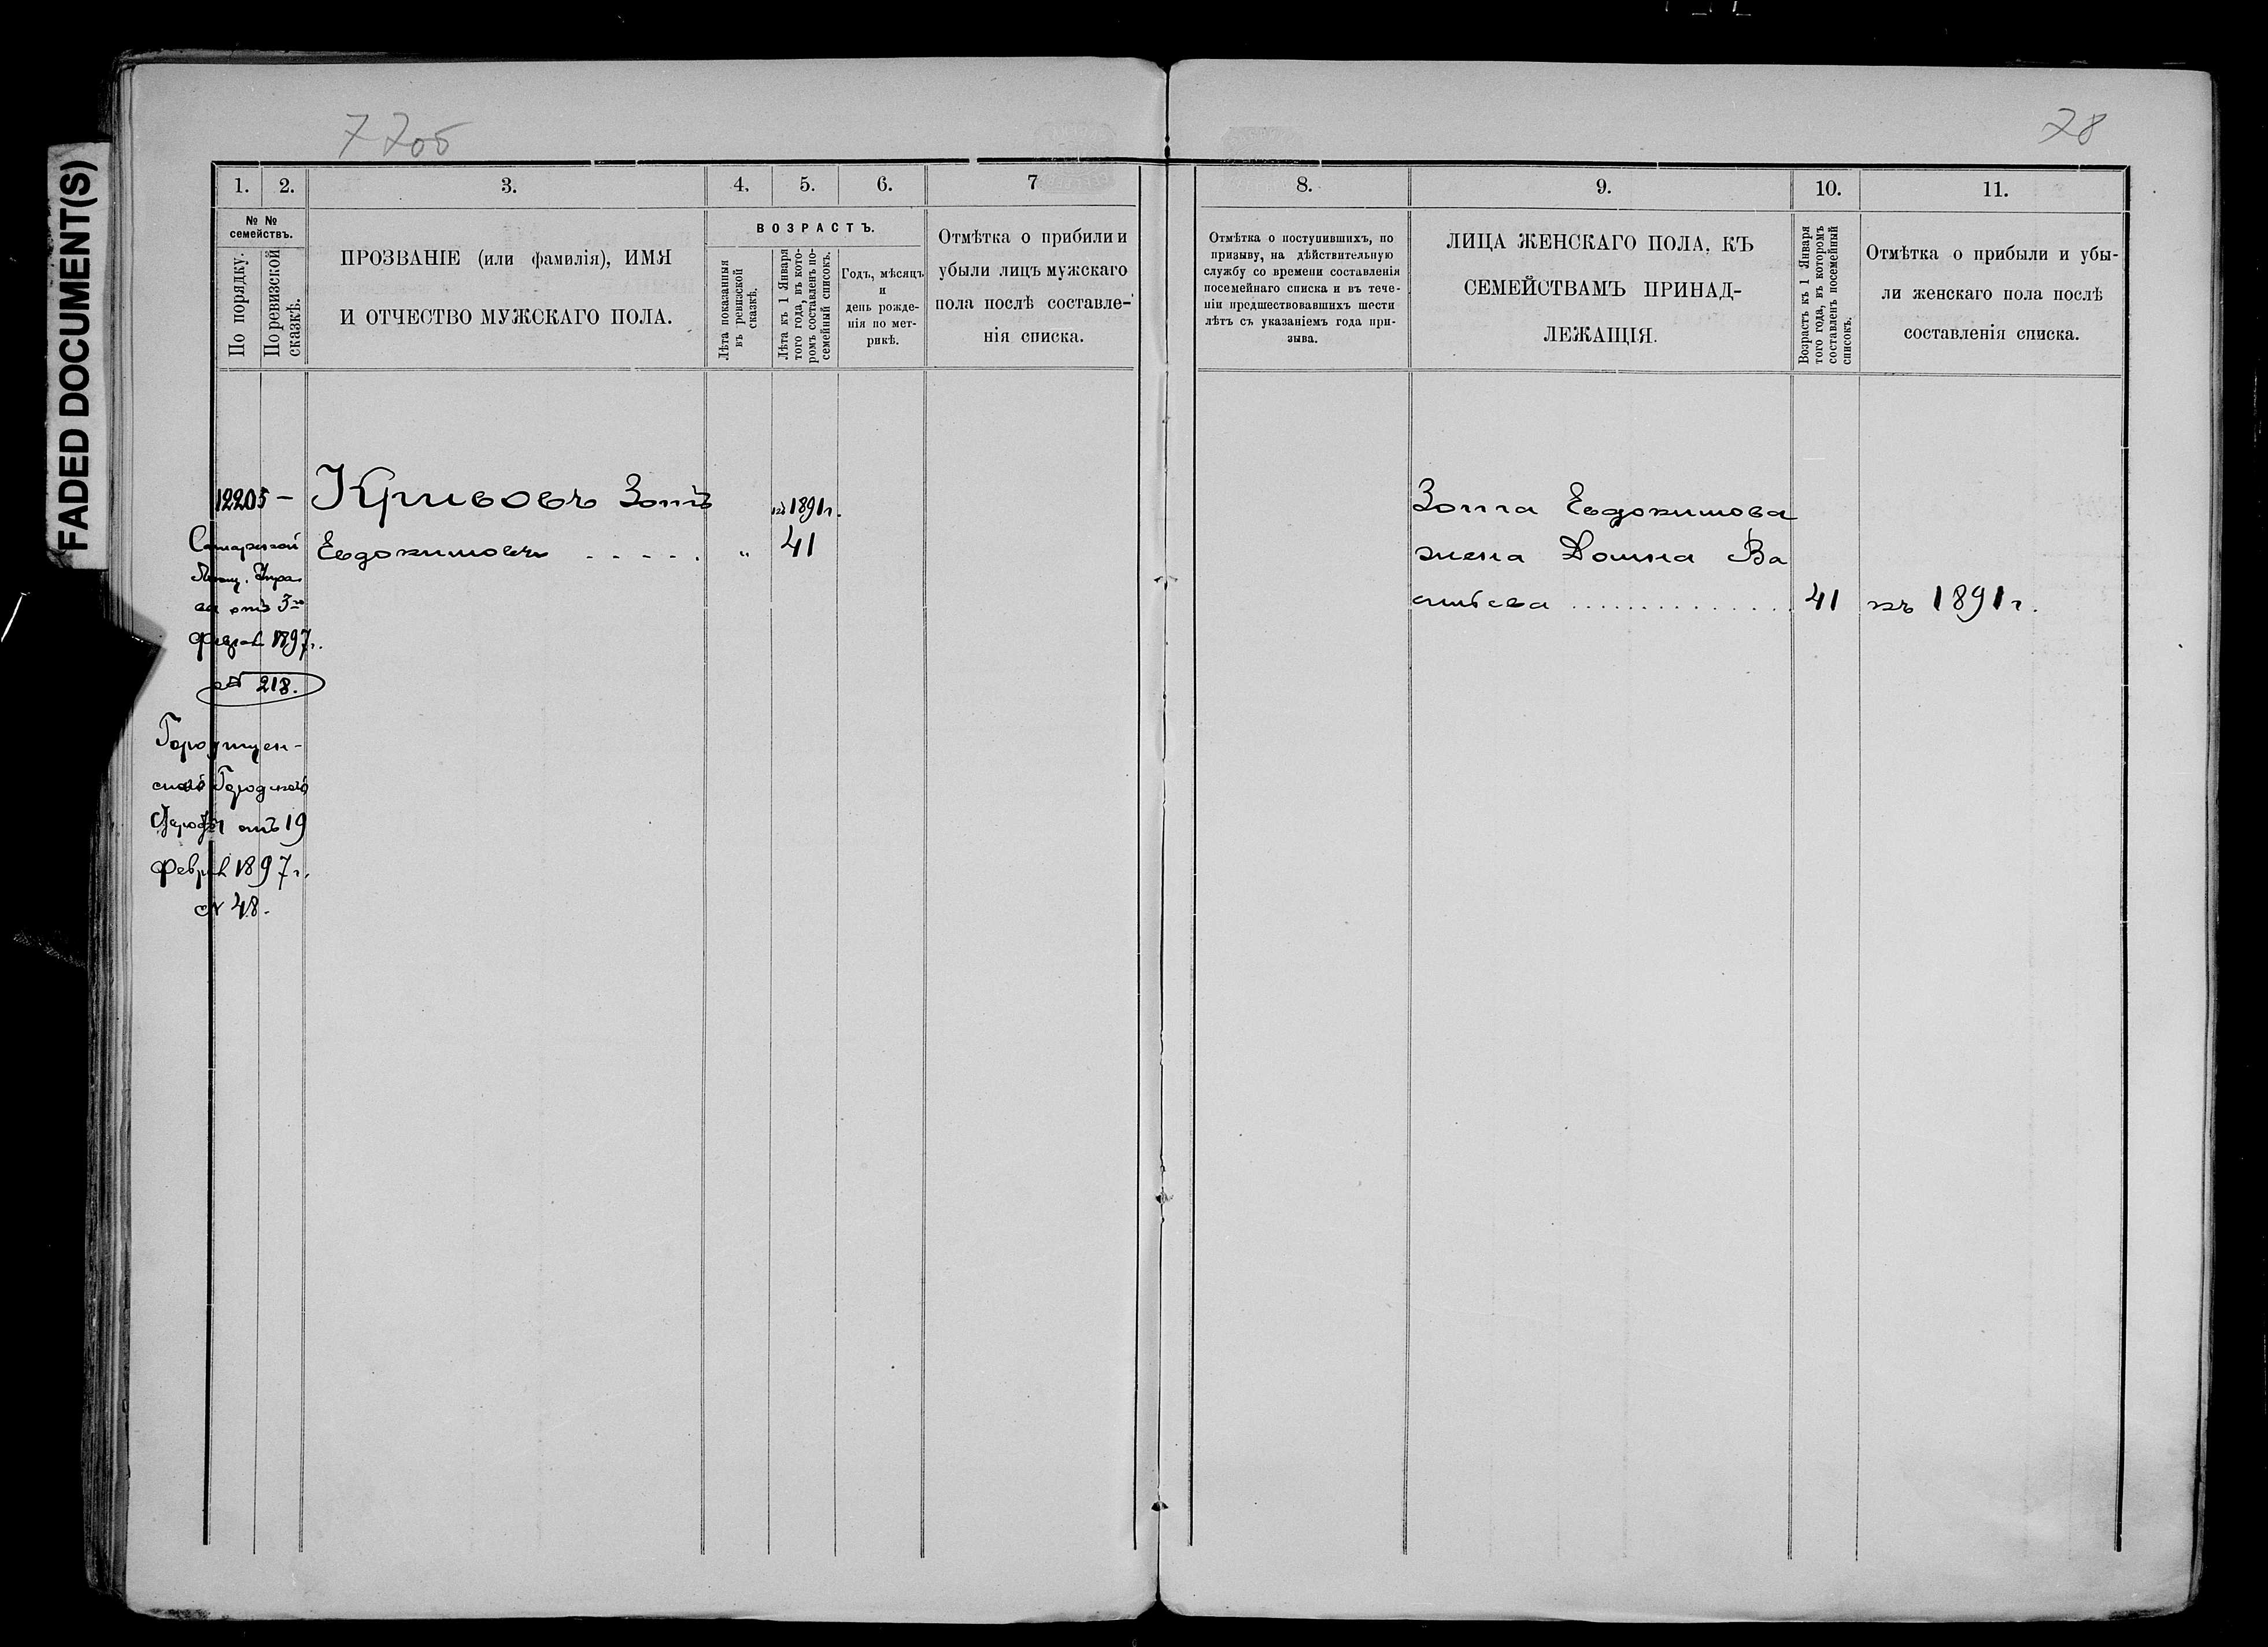 FADED DOCUMENT(S)
7705
78
1. 2. 3. 4. 5. 6. 7
№ № семействъ.
По порядку.
По ревизской сказкѣ.
ПРОЗВАНІЕ (или фамилія), ИМЯ
И ОТЧЕСТВО МУЖСКАГО ПОЛА.
ВОЗРАСТЪ.
Лѣта показанныя
въ ревизской
сказкѣ.
Лѣта къ 1 Января
того года, въ кото-
ромъ составленъ по-
семейный списокъ.
Годъ, мѣсяцъ
и
день рожде-
нія по мет-
рикѣ.
Отмѣтка о прибили и
убыли лицъ мужскаго
пола послѣ составле-
нія списка.
12205 — Кривовъ Зотъ къ 1891 г.
Евдокимовъ . . . . . „ 41
Самарской
Мѣщ. Упра
вы отъ 3го
Феврал 1897 г.
№ 218.
Городищен-
ской Городской
отъ 19
Феврал 1897 г.
№ 48.
8. 9. 10. 11.
Отмѣтка о поступившихъ, по
призыву, на дѣйствительную
службу со времени составленія
посемейнаго списка и въ тече-
ніи предшествовавшихъ шести
лѣтъ съ указаніемъ года при-
зыва.
ЛИЦА ЖЕНСКАГО ПОЛА, КЪ
СЕМЕЙСТВАМЪ ПРИНАД-
ЛЕЖАЩІЯ.
Возрастъ къ 1 Января
того года, въ которомъ
составленъ посемейный
списокъ.
Отмѣтка о прибыли и убы-
ли женскаго пола послѣ
составленія списка.
Зота Евдокимова
жена Домна Ва
сильева . . . . . . . . . . . . . . . 41 къ 1891 г.